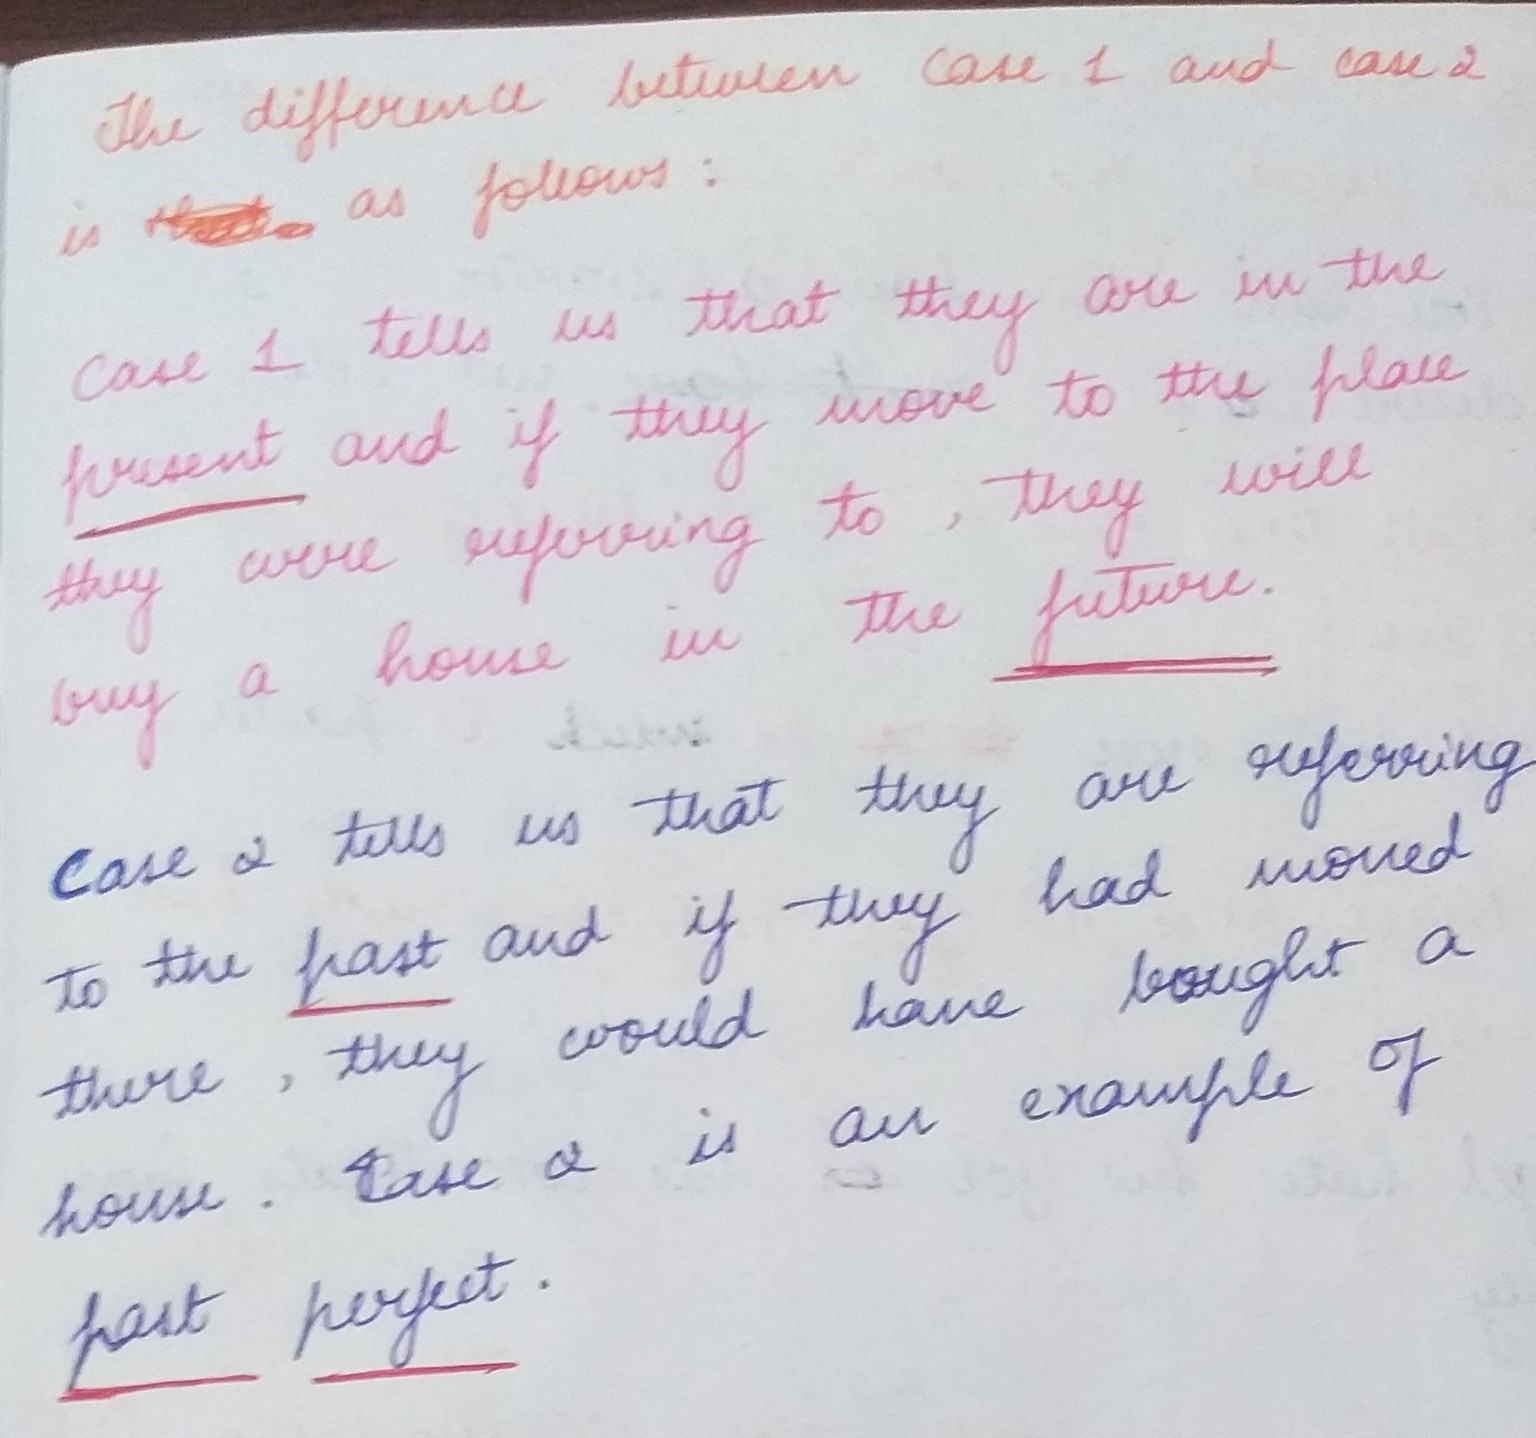 The difference between case 1 and case 2
is as follows:
Case 1 tells us that they are in the
present and if they move to the place
they were referring to, they will
buy a house in the future.
Case 2 tells us that they are referring
to the past and if they had moved
there, they would have bought a
house. Case 2 is an example of
past perfect.